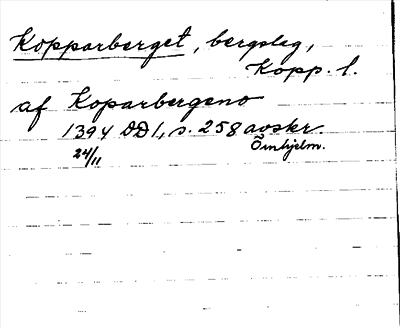 Kopparberget, bergslag,
Kopp. l.
af Koparbergeno
1394 DD 1, s. 258 avskr.
24/11 Örnhjelm.